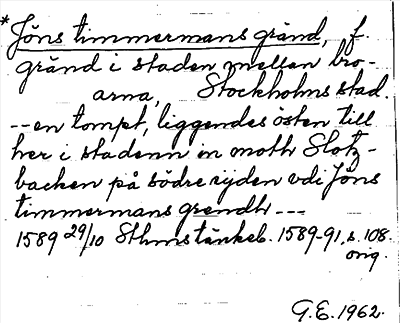 *Jöns timmermans gränd, f.
gränd i staden mellan bro-
arna, Stockholms stad.
--en tompt, liggendes östen till
her i stadenn in moth Slotz-
backen på södre sijden vdi Jöns
timmermans grendh ---
1589 29/10 Sthms tänkeb. 1589-91, s. 108.
orig.
G.E. 1962.